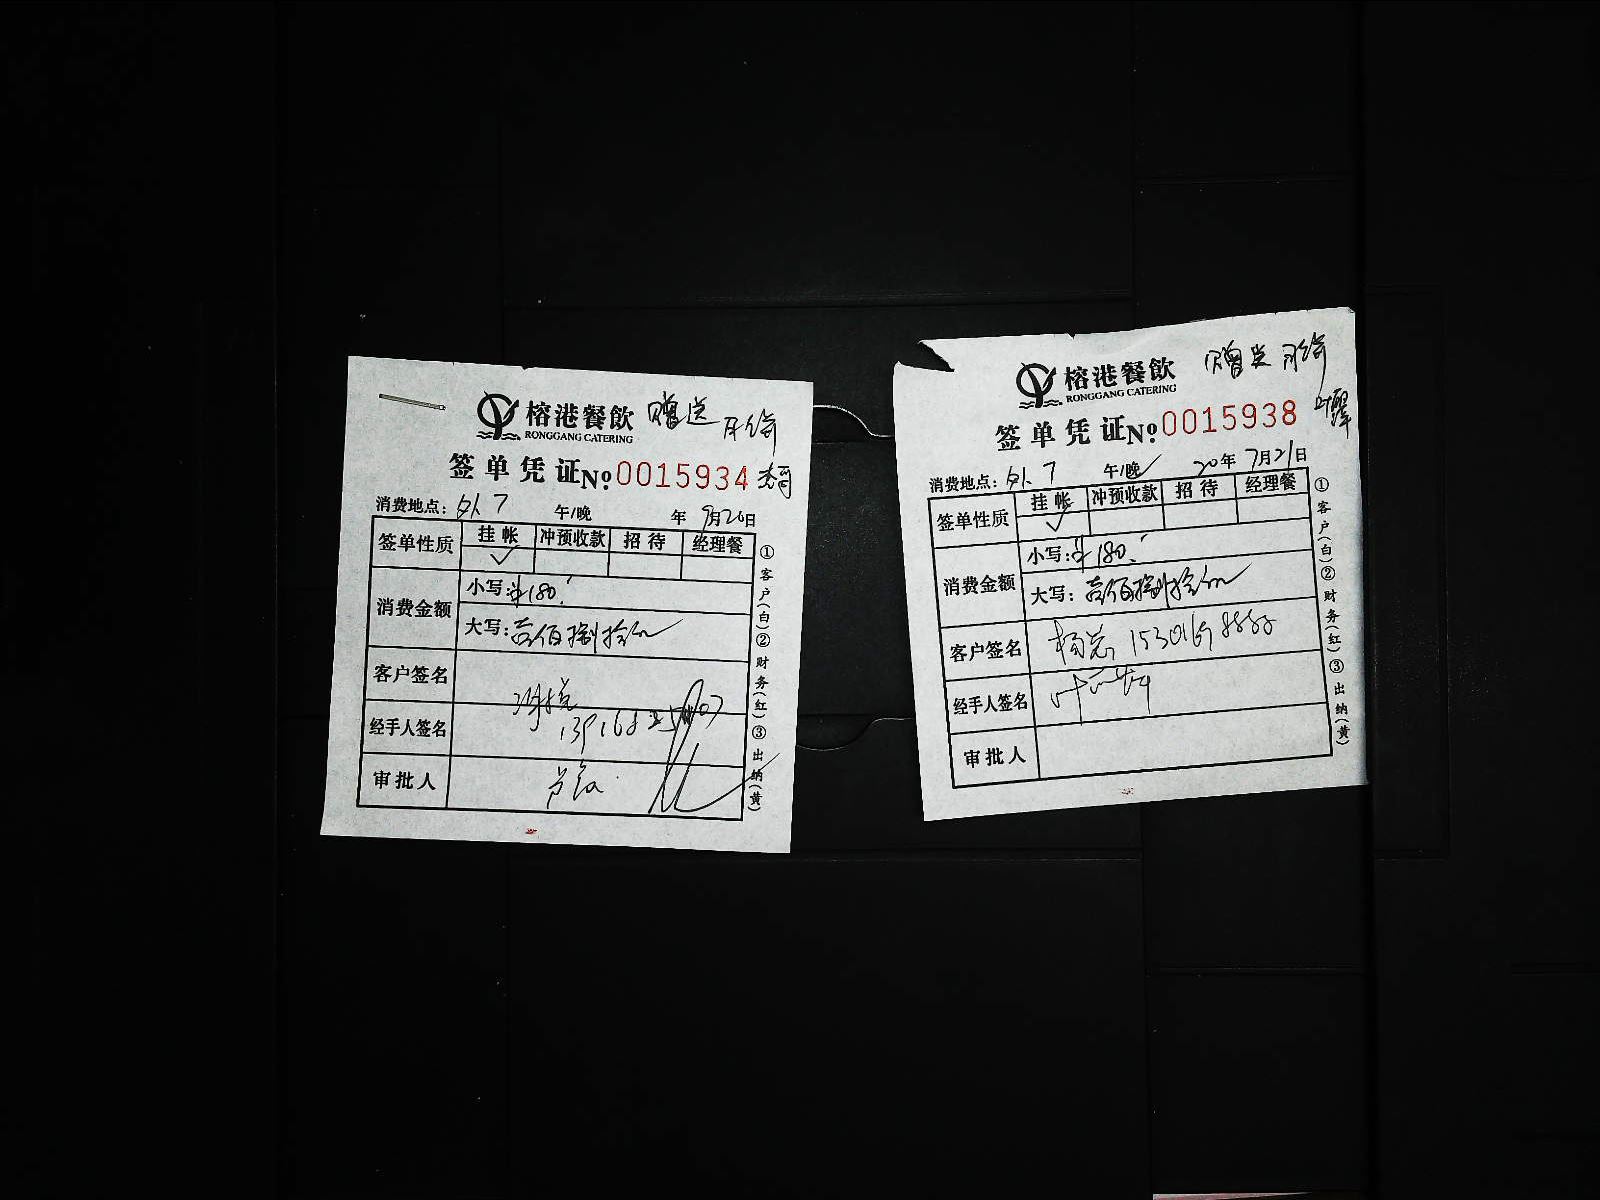 榕港餐飲 赠送 月饼
RONGGANG CATERING
签单凭证 №0015934
消费地点: 7 午/晚 年 9月20日
签单性质 挂帐 冲预收款 招待 经理餐
✓
消费金额 小写: ¥180.
大写: 壹佰捌拾元
客户签名
经手人签名
审批人
①客户(白)②财务(红)③出纳(黄)
榕港餐飲 赠送 月饼
RONGGANG CATERING
签单凭证 №0015938
消费地点: 7 午/晚✓ 20年 月21日
签单性质 挂帐 冲预收款 招待 经理餐
✓
消费金额 小写: ¥180.
大写: 壹佰捌拾元
客户签名 杨总
经手人签名
审批人
①客户(白)②财务(红)③出纳(黄)